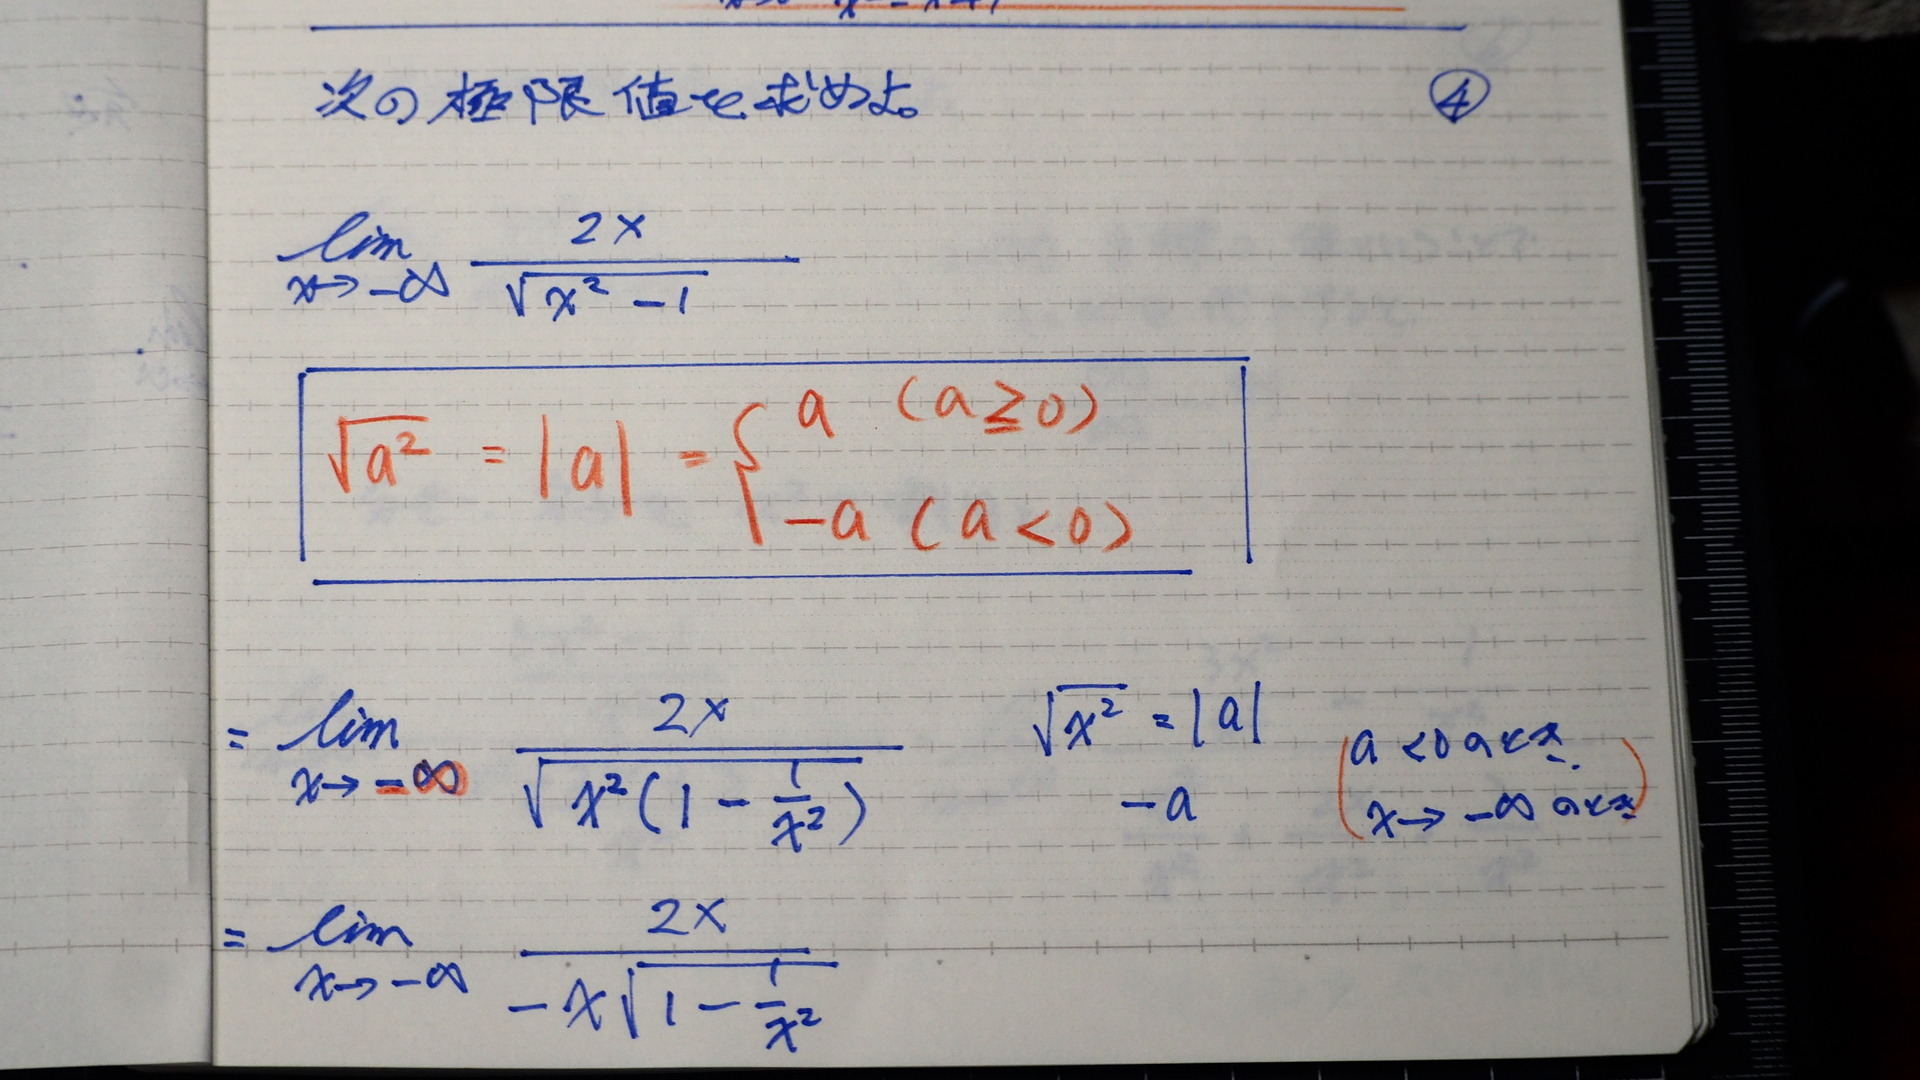 次の極限値を求めよ。 ④
lim x→-∞ 2x / √(x² - 1)
√a² = |a| = { a (a≧0)
-a (a<0)
= lim x→-∞ 2x / √(x²(1 - 1/x²)) √x² = |a| (a<0のとき.
-a x→-∞のとき)
= lim x→-∞ 2x / -x√(1 - 1/x²)